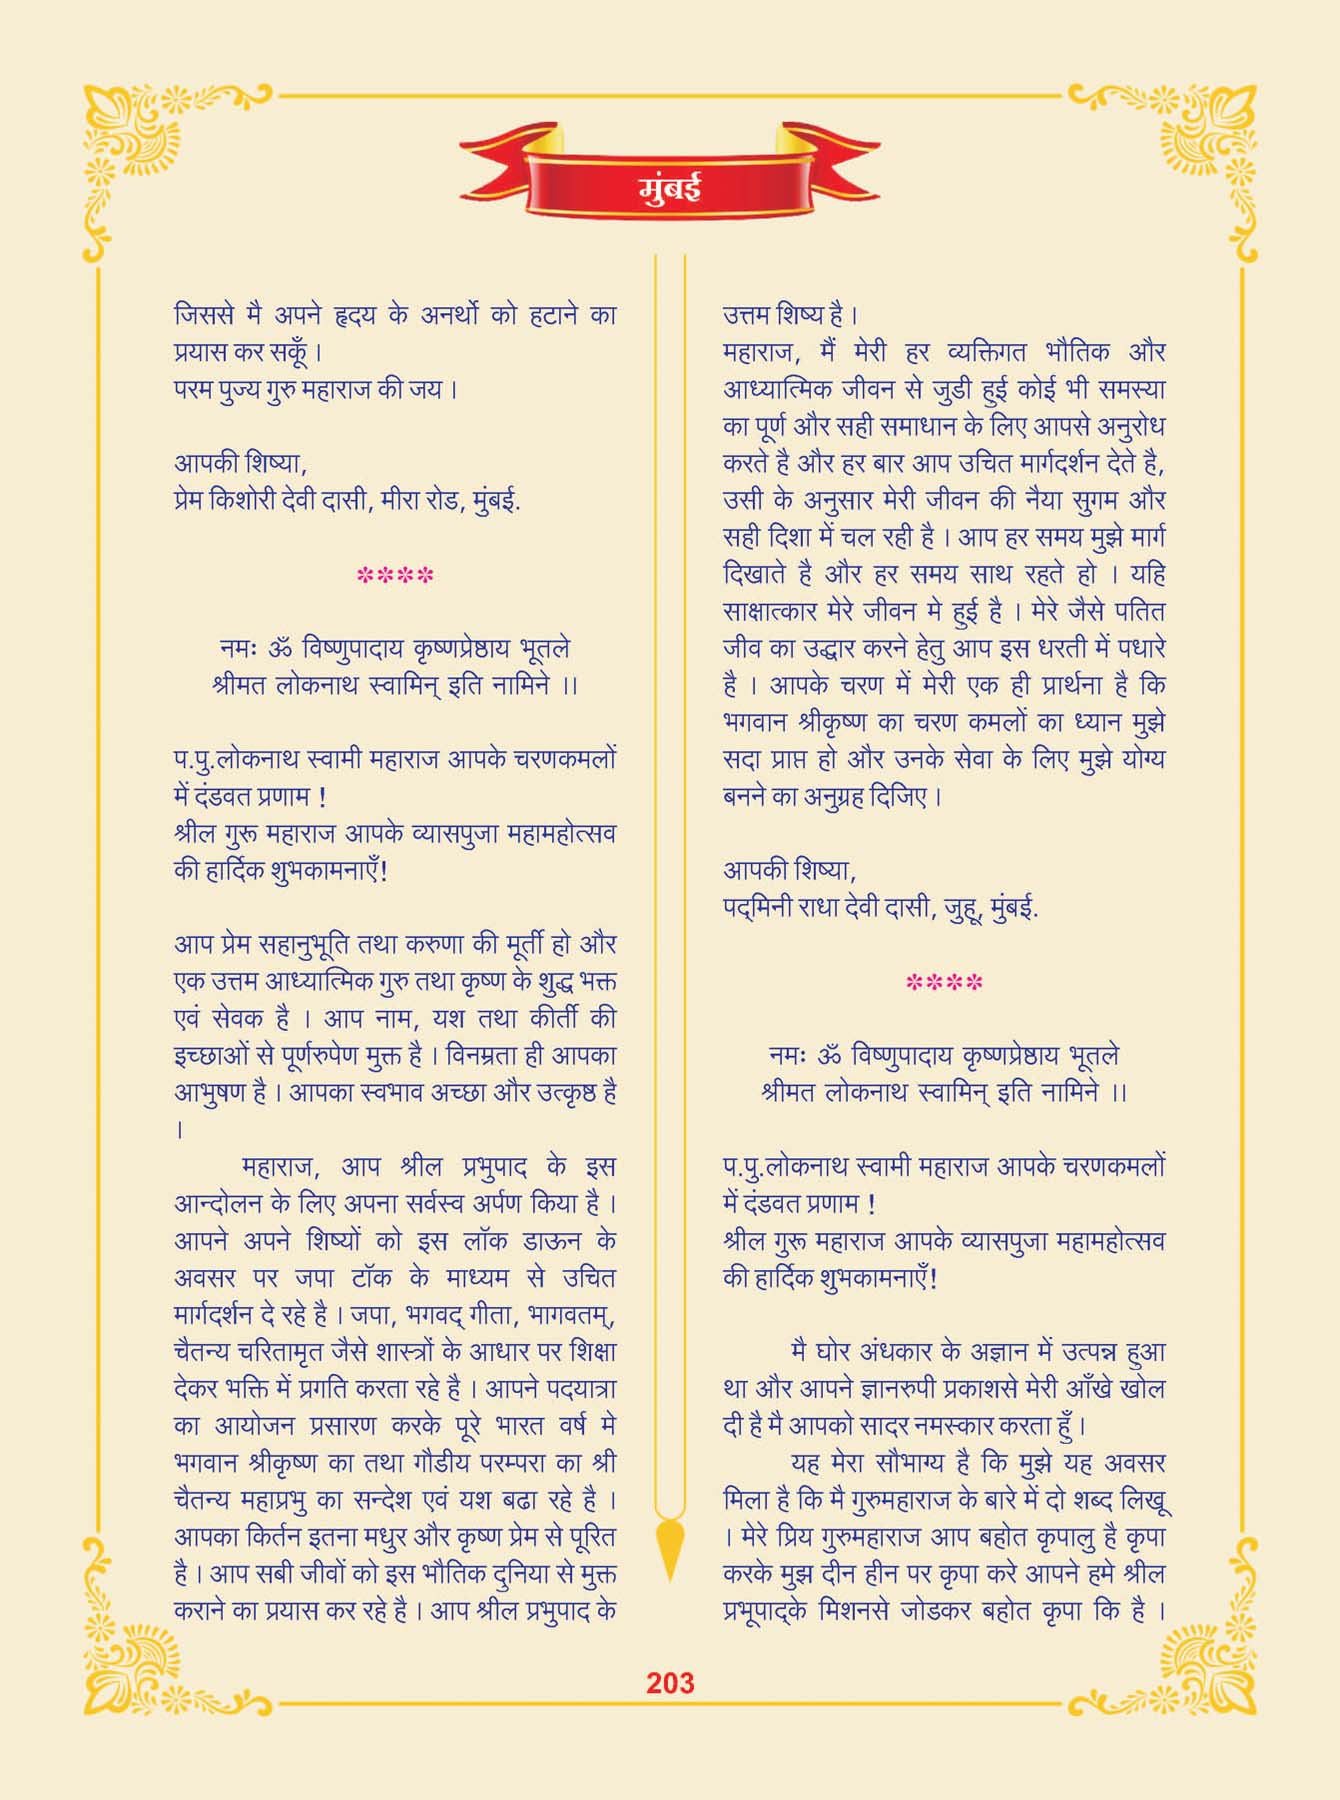 मुंबई
जिससे मै अपने हृदय के अनर्थो को हटाने का
प्रयास कर सकूँ ।
परम पुज्य गुरु महाराज की जय ।
आपकी शिष्या,
प्रेम किशोरी देवी दासी, मीरा रोड, मुंबई.
****
नमः ॐ विष्णुपादाय कृष्णप्रेष्ठाय भूतले
श्रीमत लोकनाथ स्वामिन् इति नामिने ।।
प.पु.लोकनाथ स्वामी महाराज आपके चरणकमलों
में दंडवत प्रणाम !
श्रील गुरू महाराज आपके व्यासपुजा महामहोत्सव
की हार्दिक शुभकामनाएँ!
आप प्रेम सहानुभूति तथा करुणा की मूर्ती हो और
एक उत्तम आध्यात्मिक गुरु तथा कृष्ण के शुद्ध भक्त
एवं सेवक है । आप नाम, यश तथा कीर्ती की
इच्छाओं से पूर्णरुपेण मुक्त है । विनम्रता ही आपका
आभुषण है । आपका स्वभाव अच्छा और उत्कृष्ठ है
।
महाराज, आप श्रील प्रभुपाद के इस
आन्दोलन के लिए अपना सर्वस्व अर्पण किया है ।
आपने अपने शिष्यों को इस लॉक डाऊन के
अवसर पर जपा टॉक के माध्यम से उचित
मार्गदर्शन दे रहे है । जपा, भगवद् गीता, भागवतम्,
चैतन्य चरितामृत जैसे शास्त्रों के आधार पर शिक्षा
देकर भक्ति में प्रगति करता रहे है । आपने पदयात्रा
का आयोजन प्रसारण करके पूरे भारत वर्ष मे
भगवान श्रीकृष्ण का तथा गौडीय परम्परा का श्री
चैतन्य महाप्रभु का सन्देश एवं यश बढा रहे है ।
आपका किर्तन इतना मधुर और कृष्ण प्रेम से पूरित
है । आप सबी जीवों को इस भौतिक दुनिया से मुक्त
कराने का प्रयास कर रहे है । आप श्रील प्रभुपाद के
उत्तम शिष्य है ।
महाराज, मैं मेरी हर व्यक्तिगत भौतिक और
आध्यात्मिक जीवन से जुडी हुई कोई भी समस्या
का पूर्ण और सही समाधान के लिए आपसे अनुरोध
करते है और हर बार आप उचित मार्गदर्शन देते है,
उसी के अनुसार मेरी जीवन की नैया सुगम और
सही दिशा में चल रही है । आप हर समय मुझे मार्ग
दिखाते है और हर समय साथ रहते हो । यहि
साक्षात्कार मेरे जीवन मे हुई है । मेरे जैसे पतित
जीव का उद्धार करने हेतु आप इस धरती में पधारे
है । आपके चरण में मेरी एक ही प्रार्थना है कि
भगवान श्रीकृष्ण का चरण कमलों का ध्यान मुझे
सदा प्राप्त हो और उनके सेवा के लिए मुझे योग्य
बनने का अनुग्रह दिजिए ।
आपकी शिष्या,
पद्मिनी राधा देवी दासी, जुहू, मुंबई.
****
नमः ॐ विष्णुपादाय कृष्णप्रेष्ठाय भूतले
श्रीमत लोकनाथ स्वामिन् इति नामिने ।।
प.पु.लोकनाथ स्वामी महाराज आपके चरणकमलों
में दंडवत प्रणाम !
श्रील गुरू महाराज आपके व्यासपुजा महामहोत्सव
की हार्दिक शुभकामनाएँ!
मै घोर अंधकार के अज्ञान में उत्पन्न हुआ
था और आपने ज्ञानरुपी प्रकाशसे मेरी आँखे खोल
दी है मै आपको सादर नमस्कार करता हुँ ।
यह मेरा सौभाग्य है कि मुझे यह अवसर
मिला है कि मै गुरुमहाराज के बारे में दो शब्द लिखू
। मेरे प्रिय गुरुमहाराज आप बहोत कृपालु है कृपा
करके मुझ दीन हीन पर कृपा करे आपने हमे श्रील
प्रभूपाद्के मिशनसे जोडकर बहोत कृपा कि है ।
203